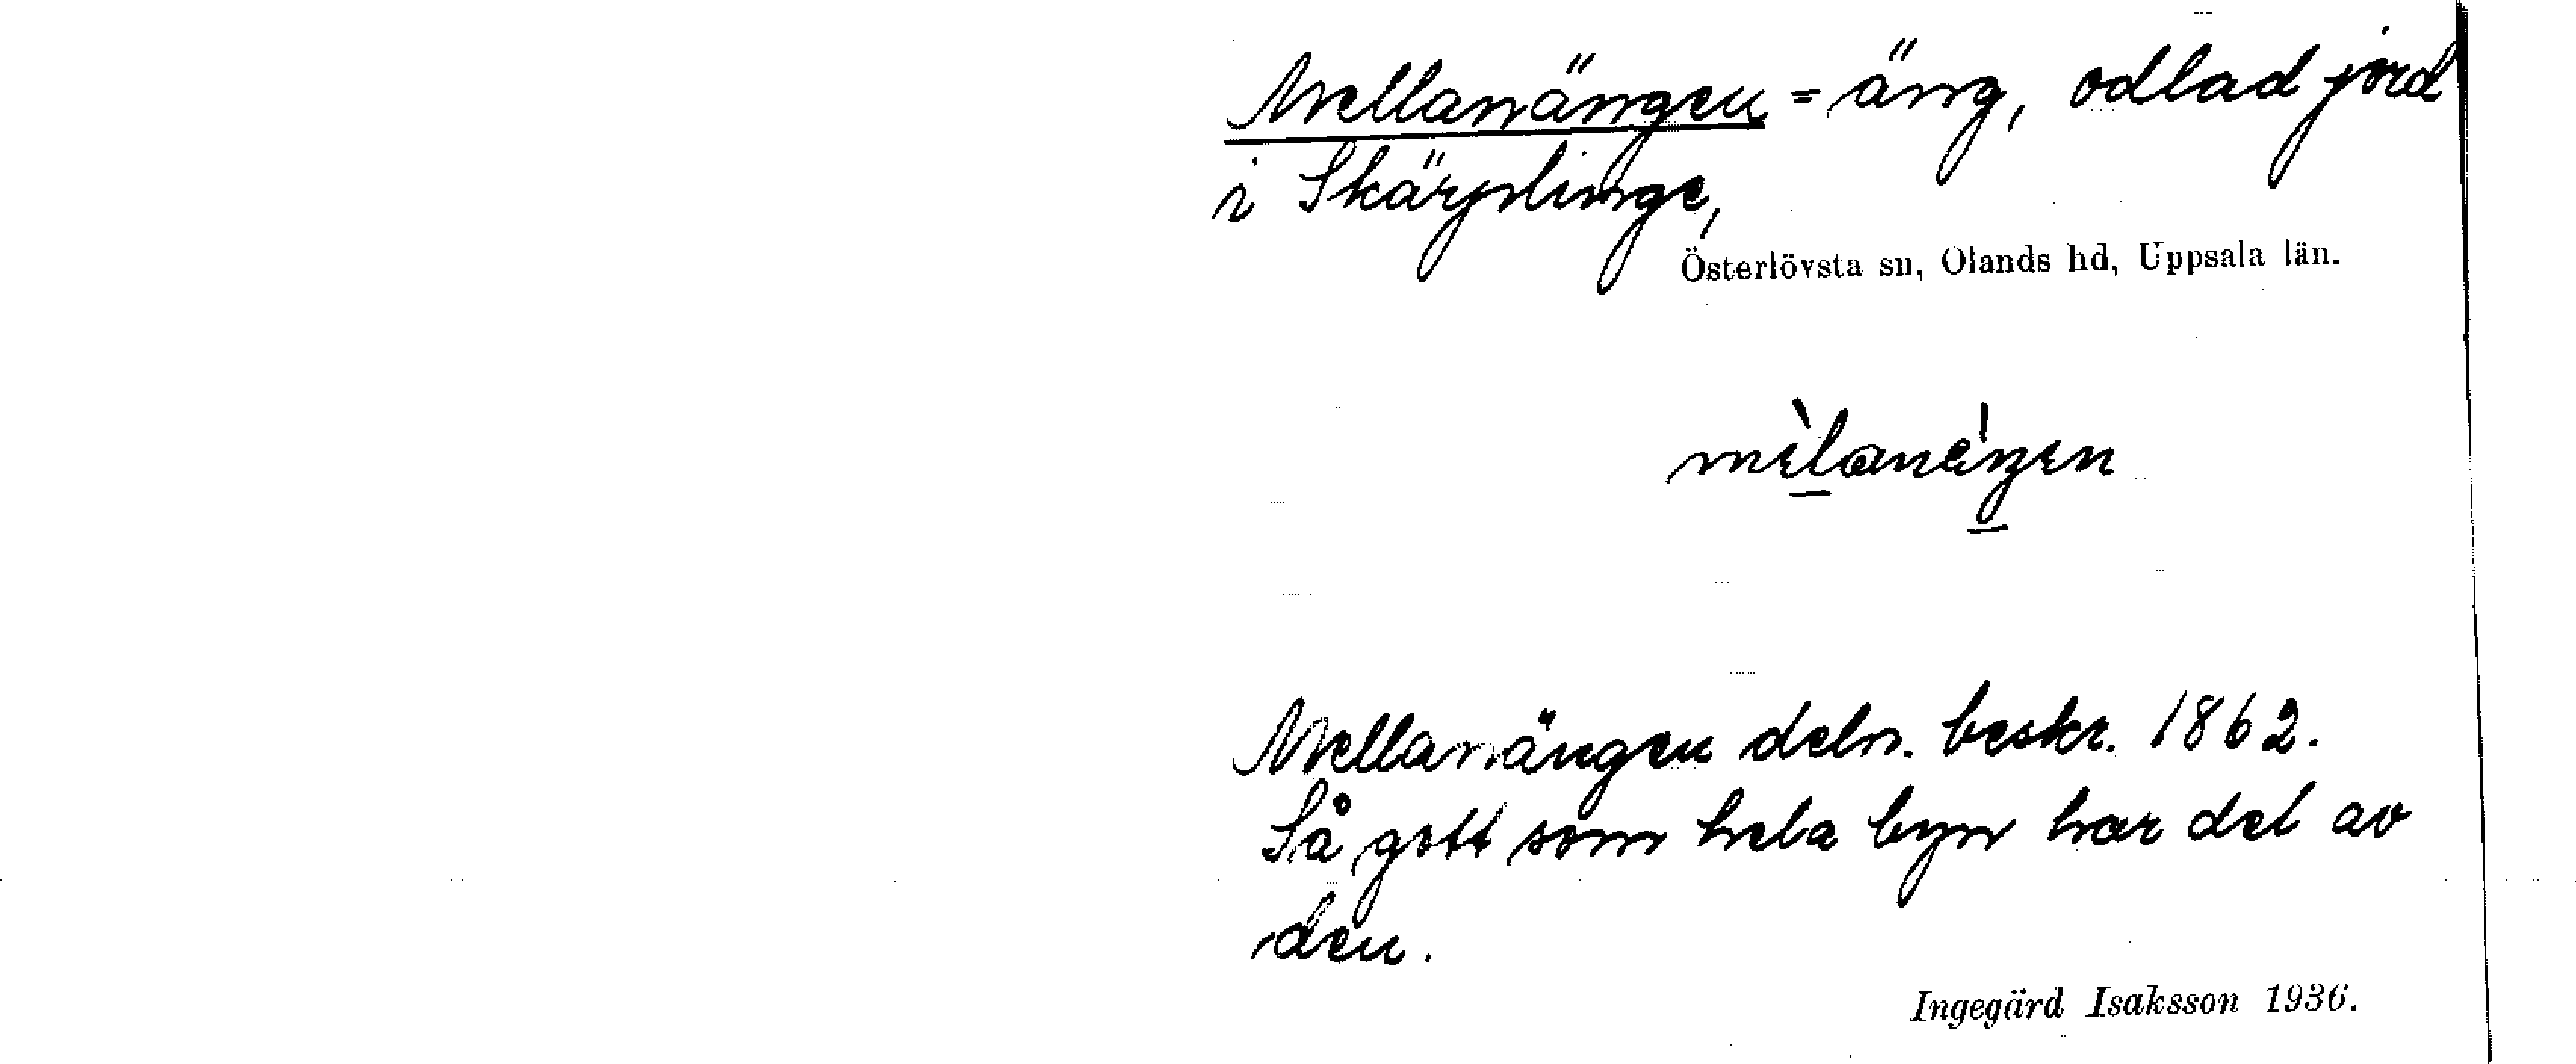 Mellanängen = äng, odlad jord
i Skärplinge,
Österlövsta sn, Olands hd, Uppsala län.
Mellanängen deln. beskr. 1862.
Så gott som hela byn har del av
den.
Ingegärd Isaksson 1936.